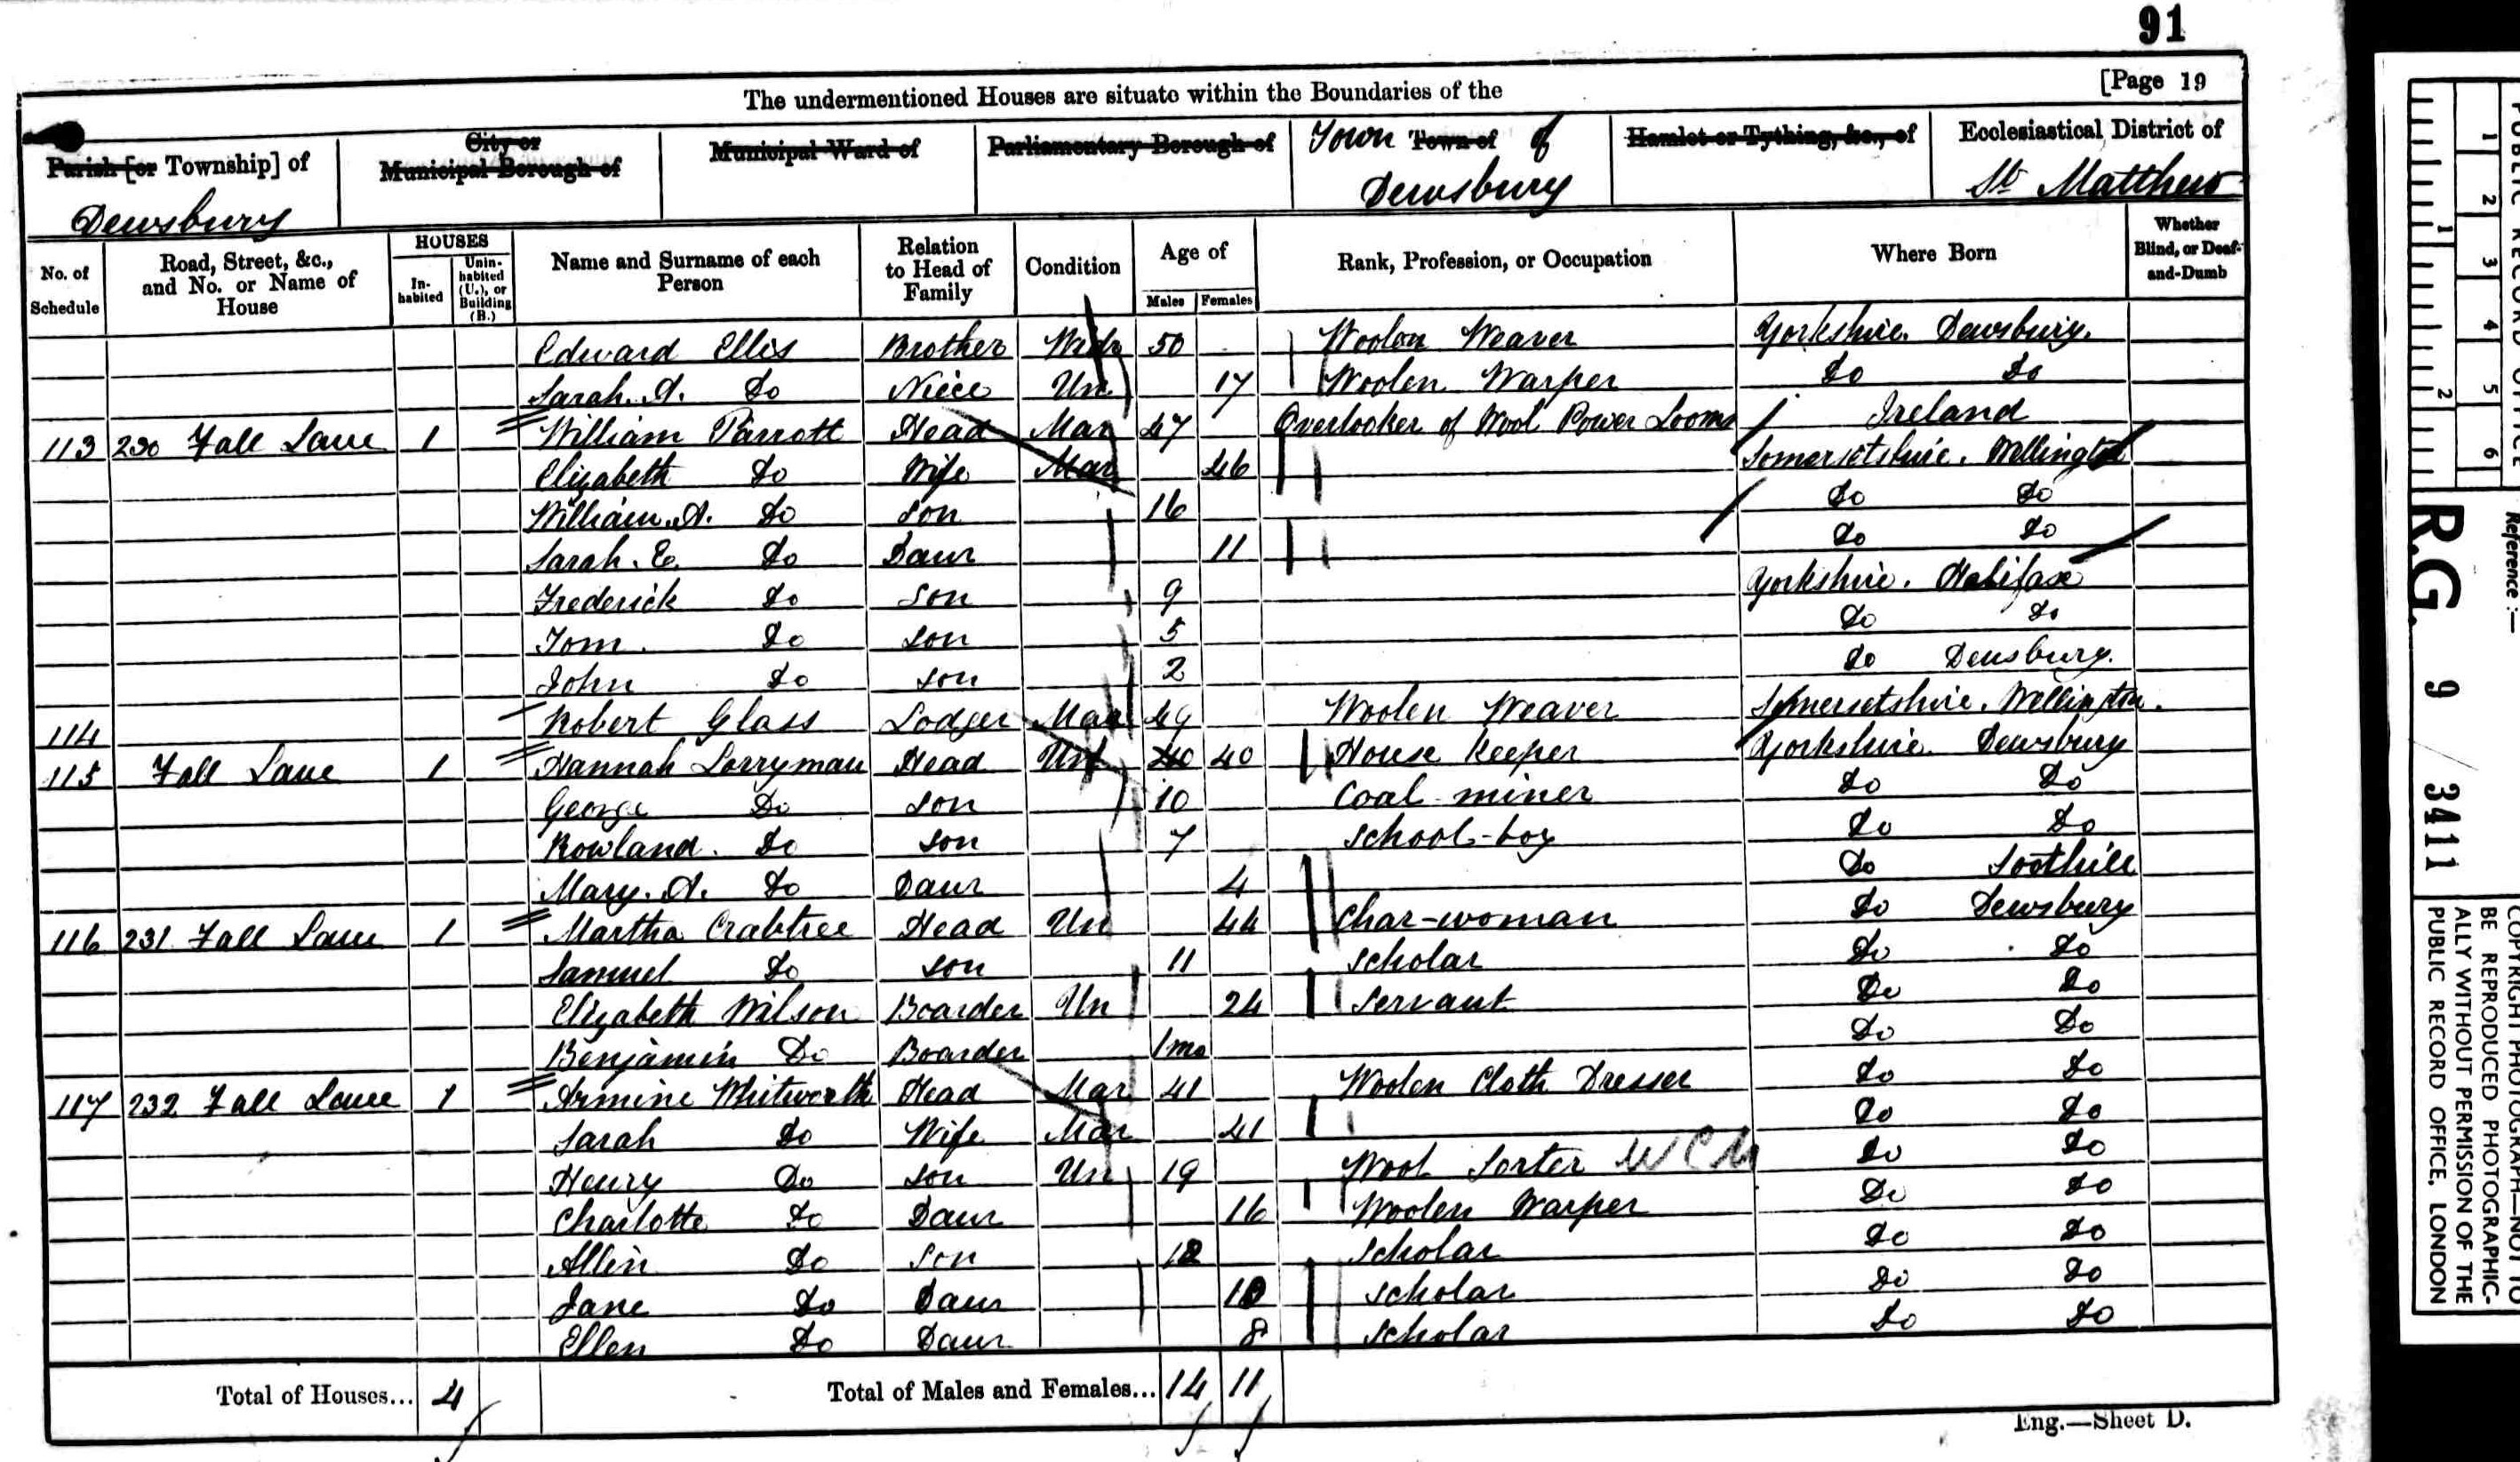 91
The undermentioned Houses are situate within the Boundaries of the [Page 19
Parish [or Township] of City or Municipal Borough of Municipal Ward of Parliamentary Borough of Town Town of of Hamlet or Tything, &c., of Ecclesiastical District of
Dewsbury Dewsbury St Matthew
No. of Schedule Road, Street, &c., and No. or Name of House HOUSES In-habited Unin-habited (U.), or Building (B.) Name and Surname of each Person Relation to Head of Family Condition Age of Males Females Rank, Profession, or Occupation Where Born Whether Blind, or Deaf-and-Dumb
Edward Ellis Brother Widr 50 Woolen Weaver Yorkshire. Dewsbury.
Sarah. A. Do Niece Un 17 Woolen Warper Do Do
113 230 Fall Lane 1 William Parrott Head Mar 47 Overlooker of Wool Power Looms Ireland
Elizabeth Do Wife Mar 46 Somersetshire. Wellington
William. A. Do Son 16 Do Do
Sarah. E. Do Daur 11 Do Do
Frederick Do Son 9 Yorkshire. Halifax
Tom. Do Son 5 Do Do
John Do Son 2 Do Dewsbury.
114 Robert Glass Lodger Mar 49 Woolen Weaver Somersetshire. Wellington.
115 Fall Lane 1 Hannah Lorryman Head Un 40 40 House Keeper Yorkshire. Dewsbury
George Do Son 10 Coal-miner Do Do
Rowland. Do Son 7 School-boy Do Do
Mary. A. Do Daur 4 Do Soothill
116 231 Fall Lane 1 Martha Crabtree Head Un 44 Char-woman Do Dewsbury
Samuel Do Son 11 Scholar Do Do
Elizabeth Wilson Boarder Un 24 Servant Do Do
Benjamin Do Boarder 1mo Do Do
117 232 Fall Lane 1 Armine Whitworth Head Mar 41 Woolen Cloth Dresser Do Do
Sarah Do Wife Mar 41 Do Do
Henry Do Son Un 19 Wool Sorter WCM Do Do
Charlotte Do Daur 16 Woolen Warper Do Do
Allen Do Son 12 Scholar Do Do
Jane Do Daur 10 Scholar Do Do
Ellen Do Daur 8 Scholar Do Do
Total of Houses... 4 Total of Males and Females... 14 11
Eng.—Sheet D.
1 2 3 4 5 6
1 2
PUBLIC RECORD OFFICE
Reference:—
R.G. 9 3411
COPYRIGHT PHOTOGRAPH—NOT TO
BE REPRODUCED PHOTOGRAPHIC-
ALLY WITHOUT PERMISSION OF THE
PUBLIC RECORD OFFICE, LONDON